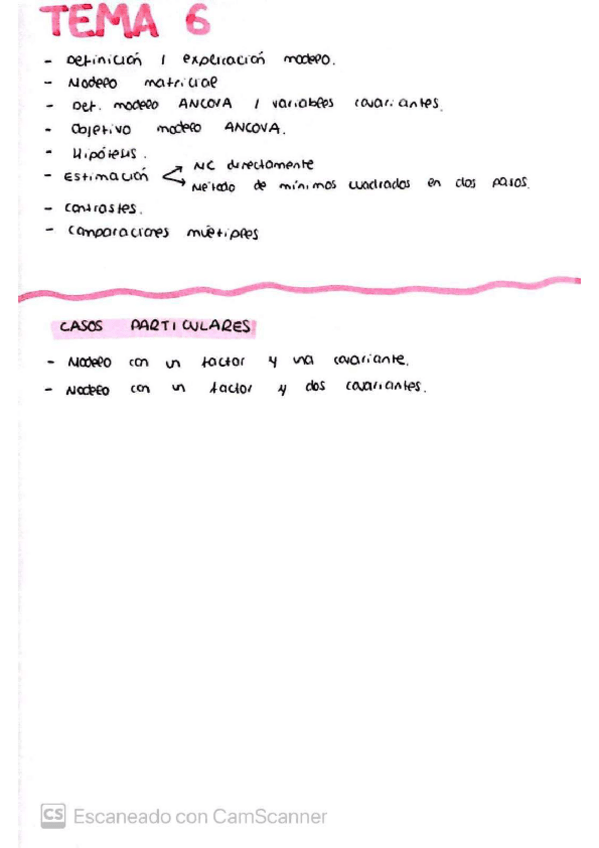 TEMA 6
- Definición / explicación modelo.
- Modelo matricial
- Def. modelo ANCOVA / variables covariantes.
- Objetivo modelo ANCOVA.
- Hipótesis.
- Estimación → MC directamente
→ Método de mínimos cuadrados en dos pasos.
- Contrastes.
- Comparaciones múltiples
CASOS PARTICULARES
- Modelo con un factor y una covariante.
- Modelo con un factor y dos covariantes.
CS Escaneado con CamScanner